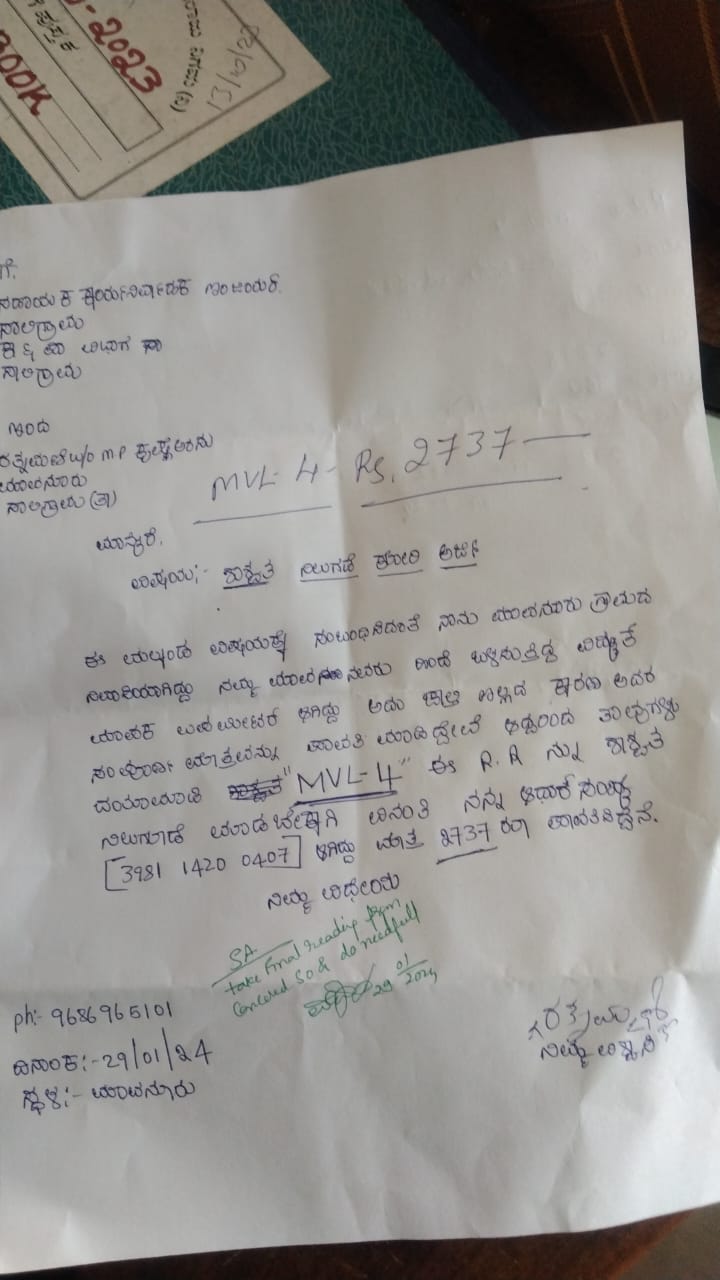 2023
BOOK
ಗೆ.
ಸಹಾಯಕ ಕಾರ್ಯನಿರ್ವಾಹಕ ಇಂಜಿನಿಯರ್.
ಸಾಲಿಗ್ರಾಮ
ಸಾಲಿಗ್ರಾಮ
ಇಂದ
W/o M P
ಸಾಲಿಗ್ರಾಮ (ತಾ)
MVL- 4 - Rs. 2737
ಮಾನ್ಯರೆ,
ವಿಷಯ:- ಶಾಶ್ವತ ನಿಲುಗಡೆ ಕೋರಿ ಅರ್ಜಿ
ಈ ಮೇಲ್ಕಂಡ ವಿಷಯಕ್ಕೆ ಸಂಬಂಧಿಸಿದಂತೆ ನಾನು ಗ್ರಾಮದ
ನಿವಾಸಿಯಾಗಿದ್ದು ನಮ್ಮ ಹಿಂದೆ ಬಳಸುತ್ತಿದ್ದ ವಿದ್ಯುತ್
ಮಾಪಕ ಆಗಿದ್ದು ಅದು ಕಾರಣ ಅದರ
ಸಂಪೂರ್ಣ ಮಾತ್ರವನ್ನು ಪಾವತಿ ಮಾಡಿದ್ದೇವೆ ಆದ್ದರಿಂದ ತಾವುಗಳು
ದಯಮಾಡಿ "MVL-4" ಈ R.R ನ್ನು ಶಾಶ್ವತ
ನಿಲುಗಡೆ ಮಾಡಬೇಕಾಗಿ ವಿನಂತಿ ನನ್ನ ಆಧಾರ್ ಸಂಖ್ಯೆ
[3981 1420 0407] ಆಗಿದ್ದು ಮಾತ್ರ 2737 ರೂ ಪಾವತಿಸಿದ್ದೇನೆ.
ನಿಮ್ಮ ವಿಧೇಯ
SA
take final reading from
Concerned SO & do needfull
29/01/2024
ph:- 9686965101
ದಿನಾಂಕ:- 29/01/24
ನಿಮ್ಮ ವಿಶ್ವಾಸಿ
ಸ್ಥಳ:- ಮಾವನೂರು